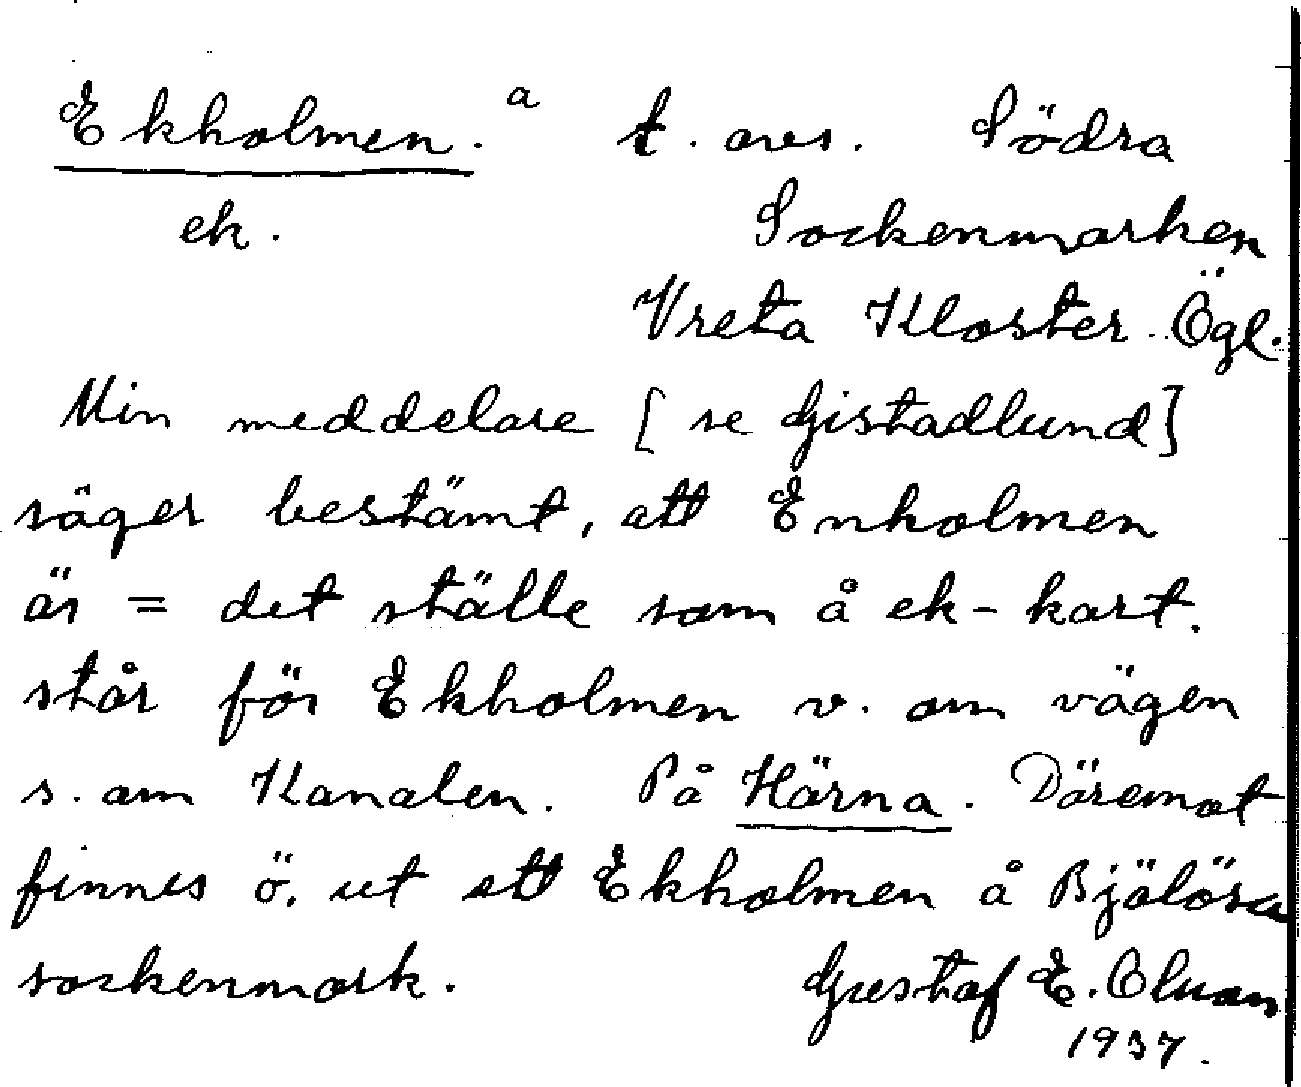 Ekholmen.ᵃ t. avs. Södra
ek. Sockenmarken
Vreta Kloster. Ögl.
Min meddelare [se Gistadlund]
säger bestämt, att Enholmen
är = det ställe som å ek-kart.
står för Ekholmen v. om vägen
s. om Kanalen. På Härna. Däremot
finnes ö. ut ett Ekholmen å Bjälösa
sockenmark. Gustaf E.
1937.